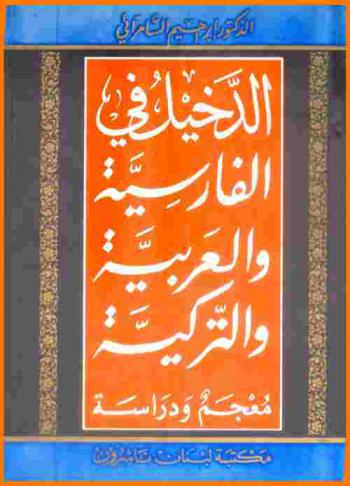 الدكتور إبرهيم السامرائي
الدَّخيل في
الفارسيَّة
والعَربيَّة
والتّركيَّة
مُعْجَمٌ وَدرَاسَة
مكتبة لبنان ناشرون